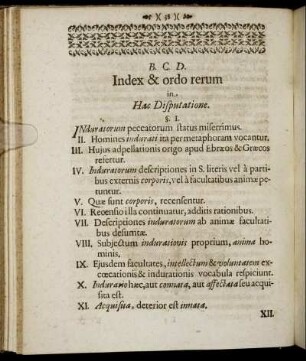 )( 58 )(
B. C. D.
Index & ordo rerum
in
Hac Disputatione.
§. I.
INduratorum peccatorum status miserrimus.
II. Homines indurati ita per metaphoram vocantur.
III. Hujus adpellationis origo apud Ebræos & Græcos
refertur.
IV. Induratorum descriptiones in S. literis vel à parti-
bus externis corporis, vel à facultatibus animæ pe-
tuntur.
V. Quæ sunt corporis, recensentur.
VI. Recensio illa continuatur, additis rationibus.
VII. Descriptiones induratorum ab animæ facultati-
bus desumtæ.
VIII. Subjectum indurationis proprium, anima ho-
minis.
IX. Ejusdem facultates, intellectum & voluntatem ex-
cœcationis & indurationis vocabula respiciunt.
X. Induratio hæc, aut connata, aut affectata seu acqui-
sita est.
XI. Acquisita, deterior est innata.
XII.